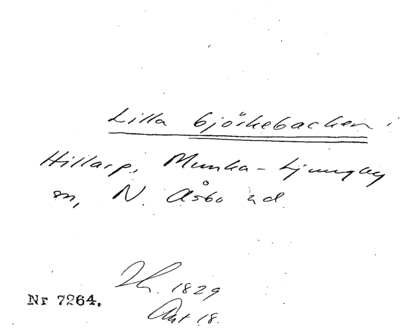 Lilla björkebacken i
Hillarp, Munka-Ljungby
sn, N. Åsbo hd.
1829
Nr 7264.
18.